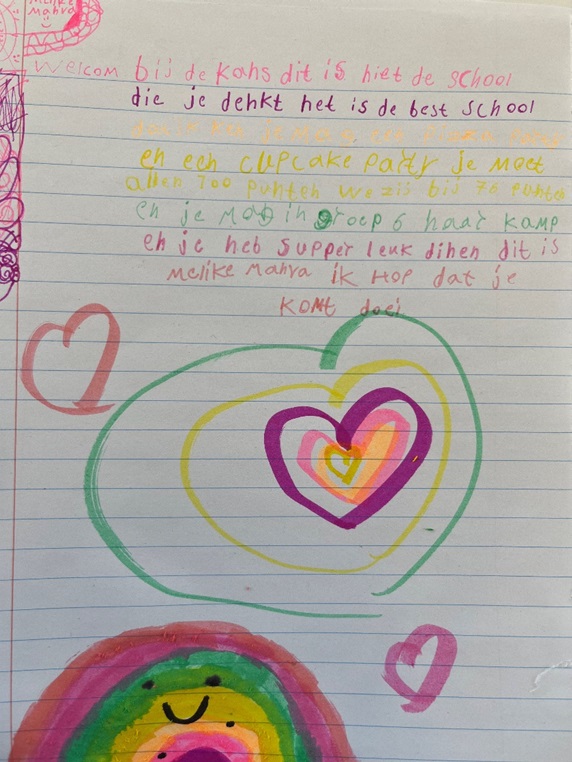 Melike
Mahra
Welcom bij de kans dit is hiet de school
die je dehkt het is de best school
je een
en een cupcake party je moet
allen 100 punten we zis bij 76 punten
en je mag in groep 6 haar kamp
eh je heb supper leuk dihen dit is
melike mahra ik HOP dat je
KOMt doei